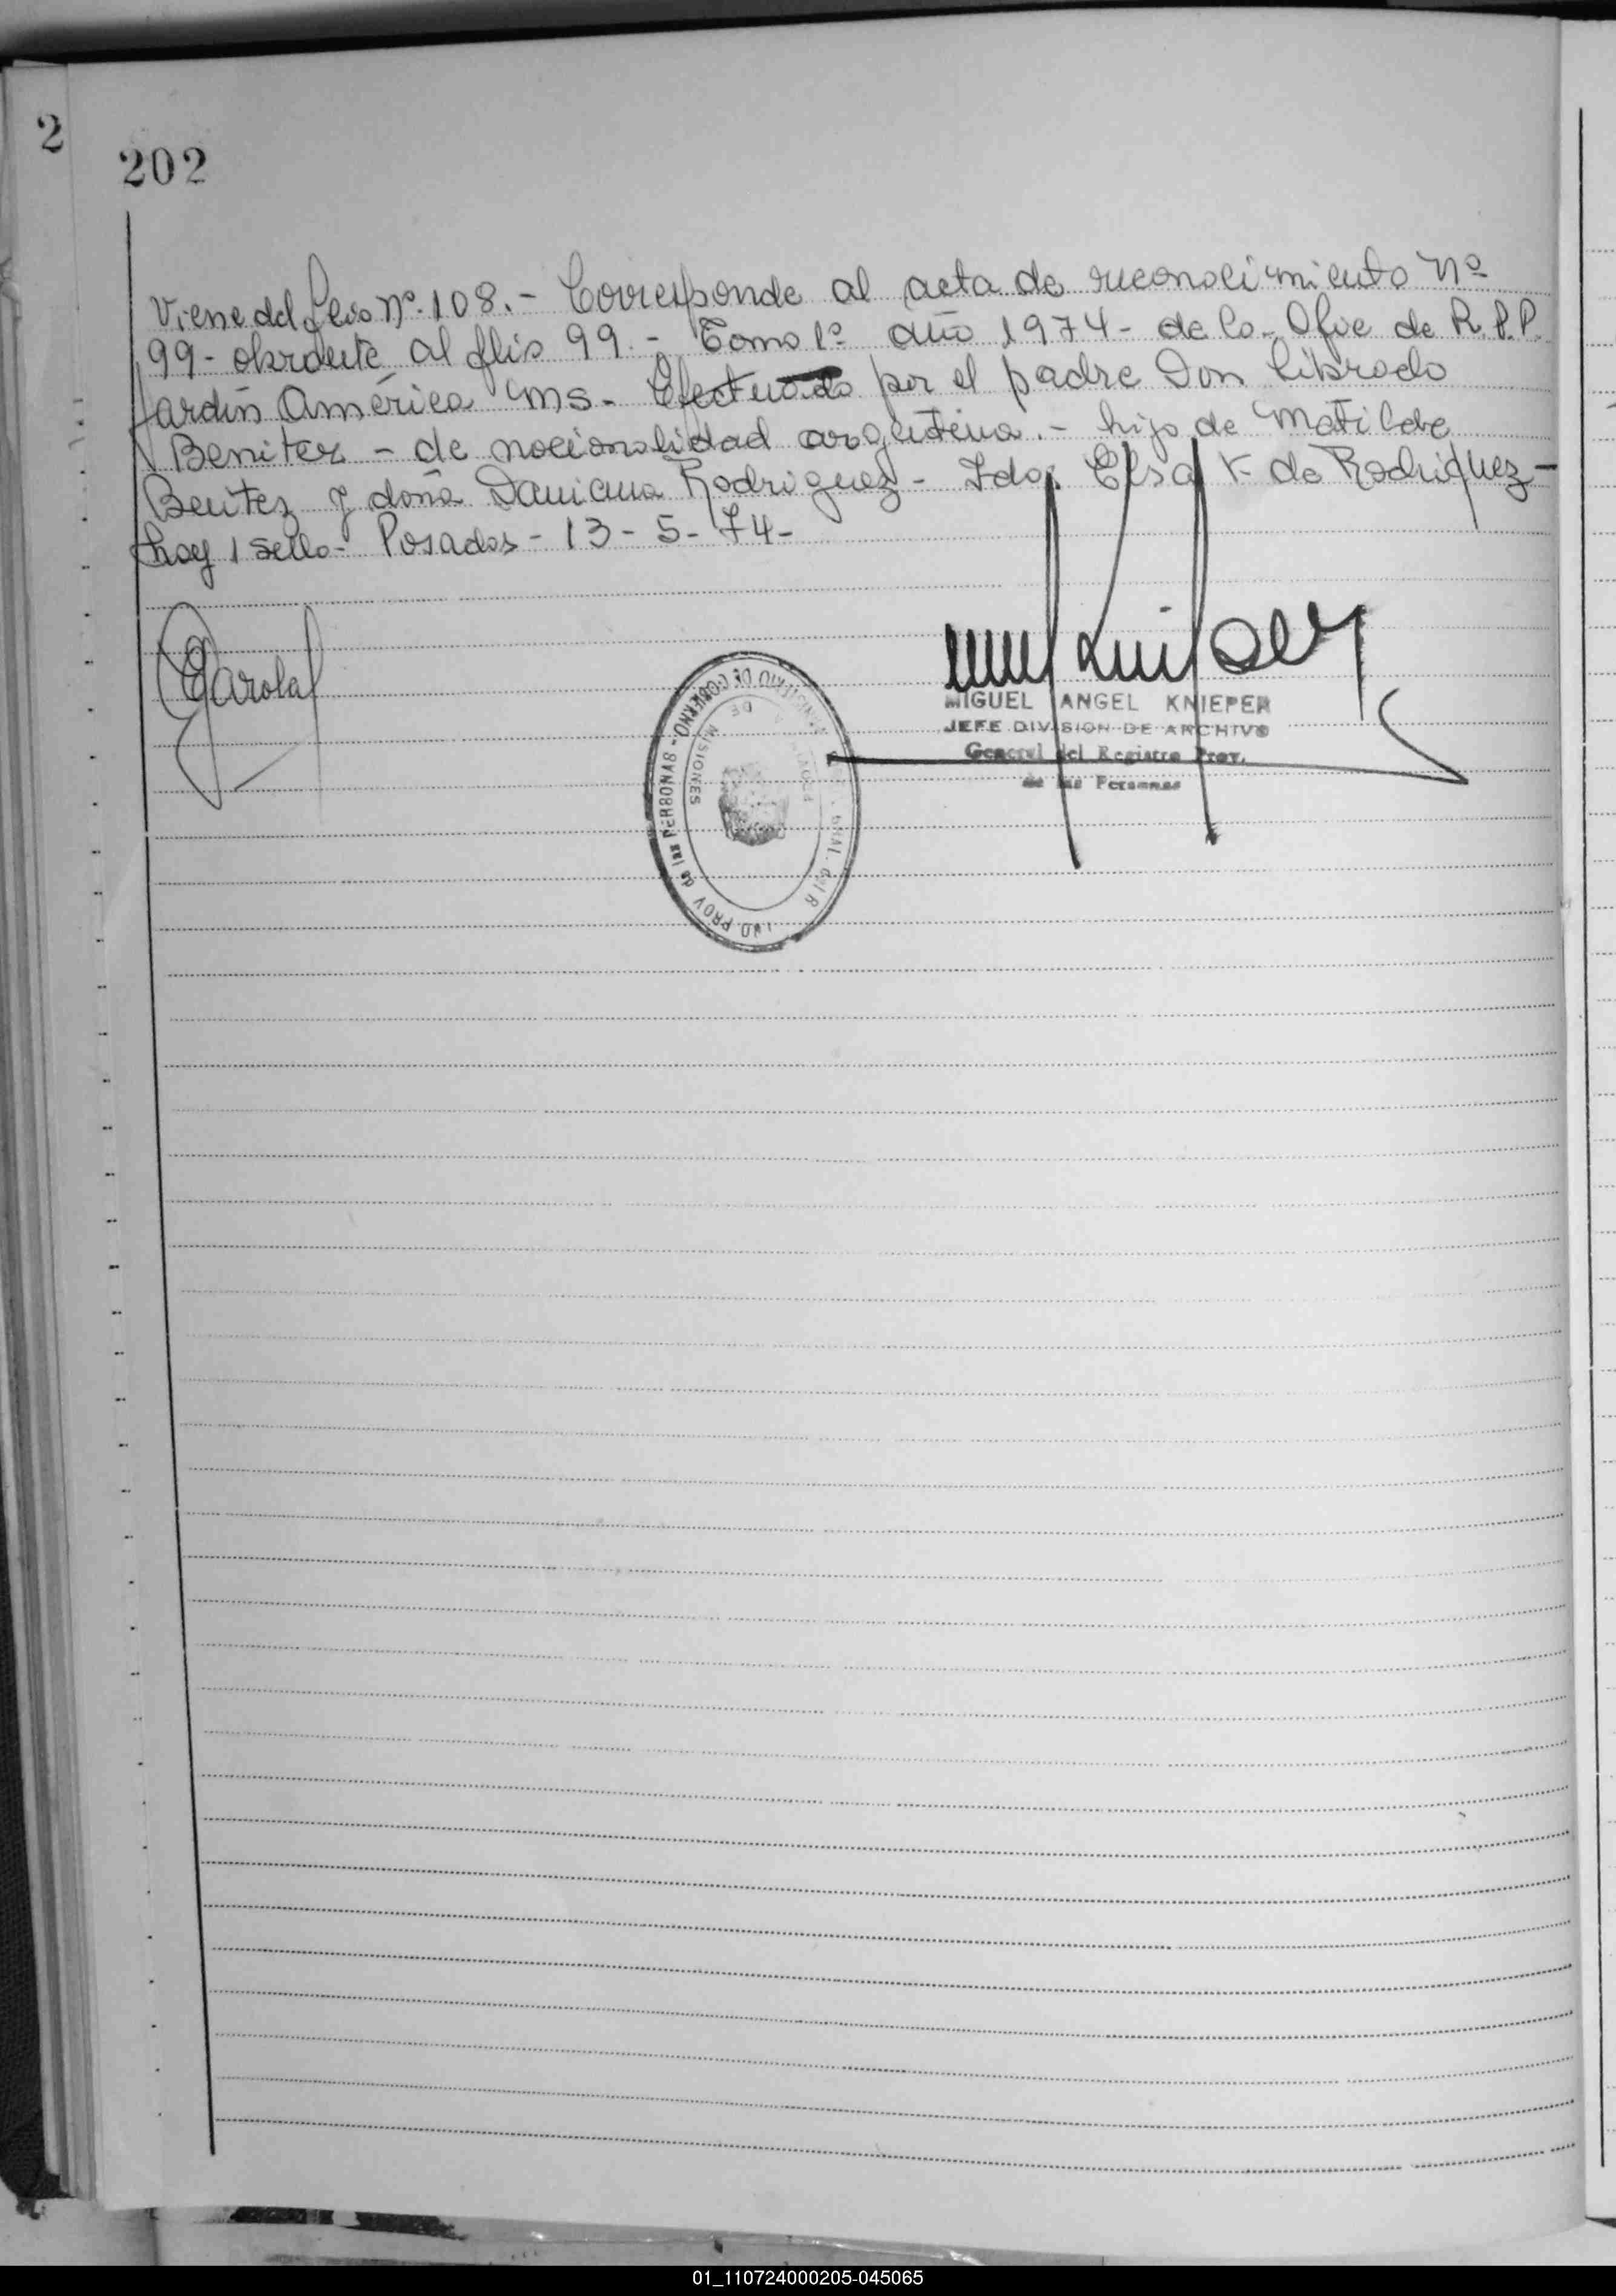 2
202
Viene del folio nº. 108.- Corresponde al acta de reconocimiento nº
99- obrante al folio 99.- Tomo 1º año 1974- de la- Ofic de R.P.P.
Jardín América ms- Efectuado por el padre Don Librado
Benitez - de nacionalidad argentina.- hijo de Matilde
Benitez y doña Damiana Rodriguez- Fdo: Elsa F. de Rodriguez-
hay 1 sello- Posadas- 13-5-74-
MIGUEL ANGEL KNIEPER
JEFE DIVISION DE ARCHIVO
General del Registro Prov.
de las Personas
MINISTERIO DE GOBIERNO - PROV de las PERSONAS
DE MISIONES
01_110724000205-045065